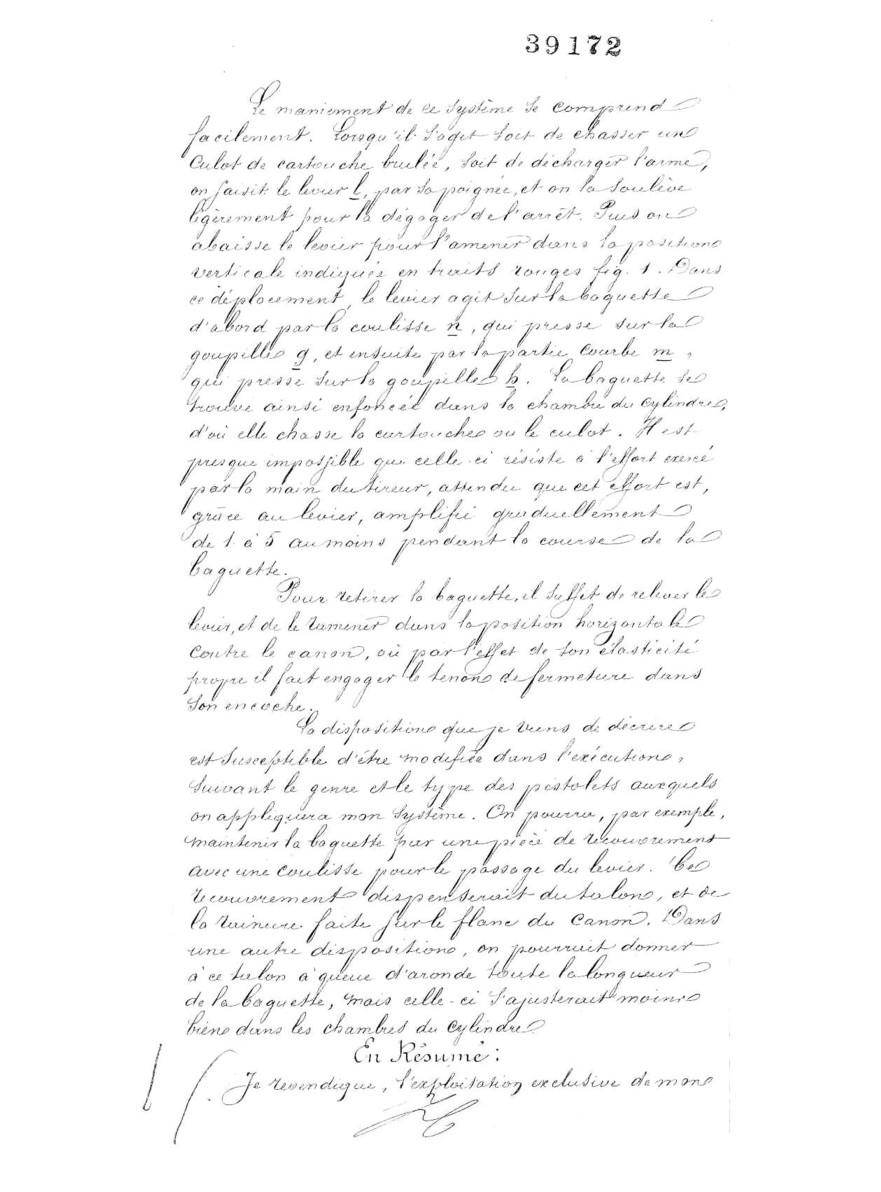 39172
Le maniement de ce système se comprend
facilement. Lorsqu'il s'agit soit de chasser un
culot de cartouche brulée, soit de décharger l'arme,
on saisit le levier l, par sa poignée, et on la soulève
légèrement pour la dégager de l'arrêt. Puis on
abaisse le levier pour l'amener dans la position
verticale indiquée en traits rouges fig. 1. Dans
ce déplacement, le levier agit sur la baguette
d'abord par la coulisse n, qui presse sur la
goupille g, et ensuite par la partie courbe m,
qui presse sur la goupille h. La baguette se
trouve ainsi enfoncée dans la chambre du cylindre,
d'où elle chasse la cartouche ou le culot. Il est
presque impossible que celle-ci résiste à l'effort exercé
par la main du tireur, attendu que cet effort est,
grâce au levier, amplifié graduellement
de 1 à 5 au moins pendant la course de la
baguette.
Pour retirer la baguette, il suffit de relever le
levier, et de le ramener dans la position horizontale
contre le canon, où par l'effet de son élasticité
propre il fait engager le tenon de fermeture dans
son encoche.
La disposition que je viens de décrire
est susceptible d'être modifiée dans l'exécution,
suivant le genre et le type des pistolets auxquels
on appliquera mon système. On pourra, par exemple,
maintenir la baguette par une pièce de recouvrement
avec une coulisse pour le passage du levier. Ce
recouvrement dispenserait du talon, et de
la rainure faite sur le flanc du canon. Dans
une autre disposition, on pourrait donner
à ce talon à queue d'aronde toute la longueur
de la baguette, mais celle-ci s'ajusterait moins
bien dans les chambres du cylindre
En Résumé:
Je revendique, l'exploitation exclusive de mon